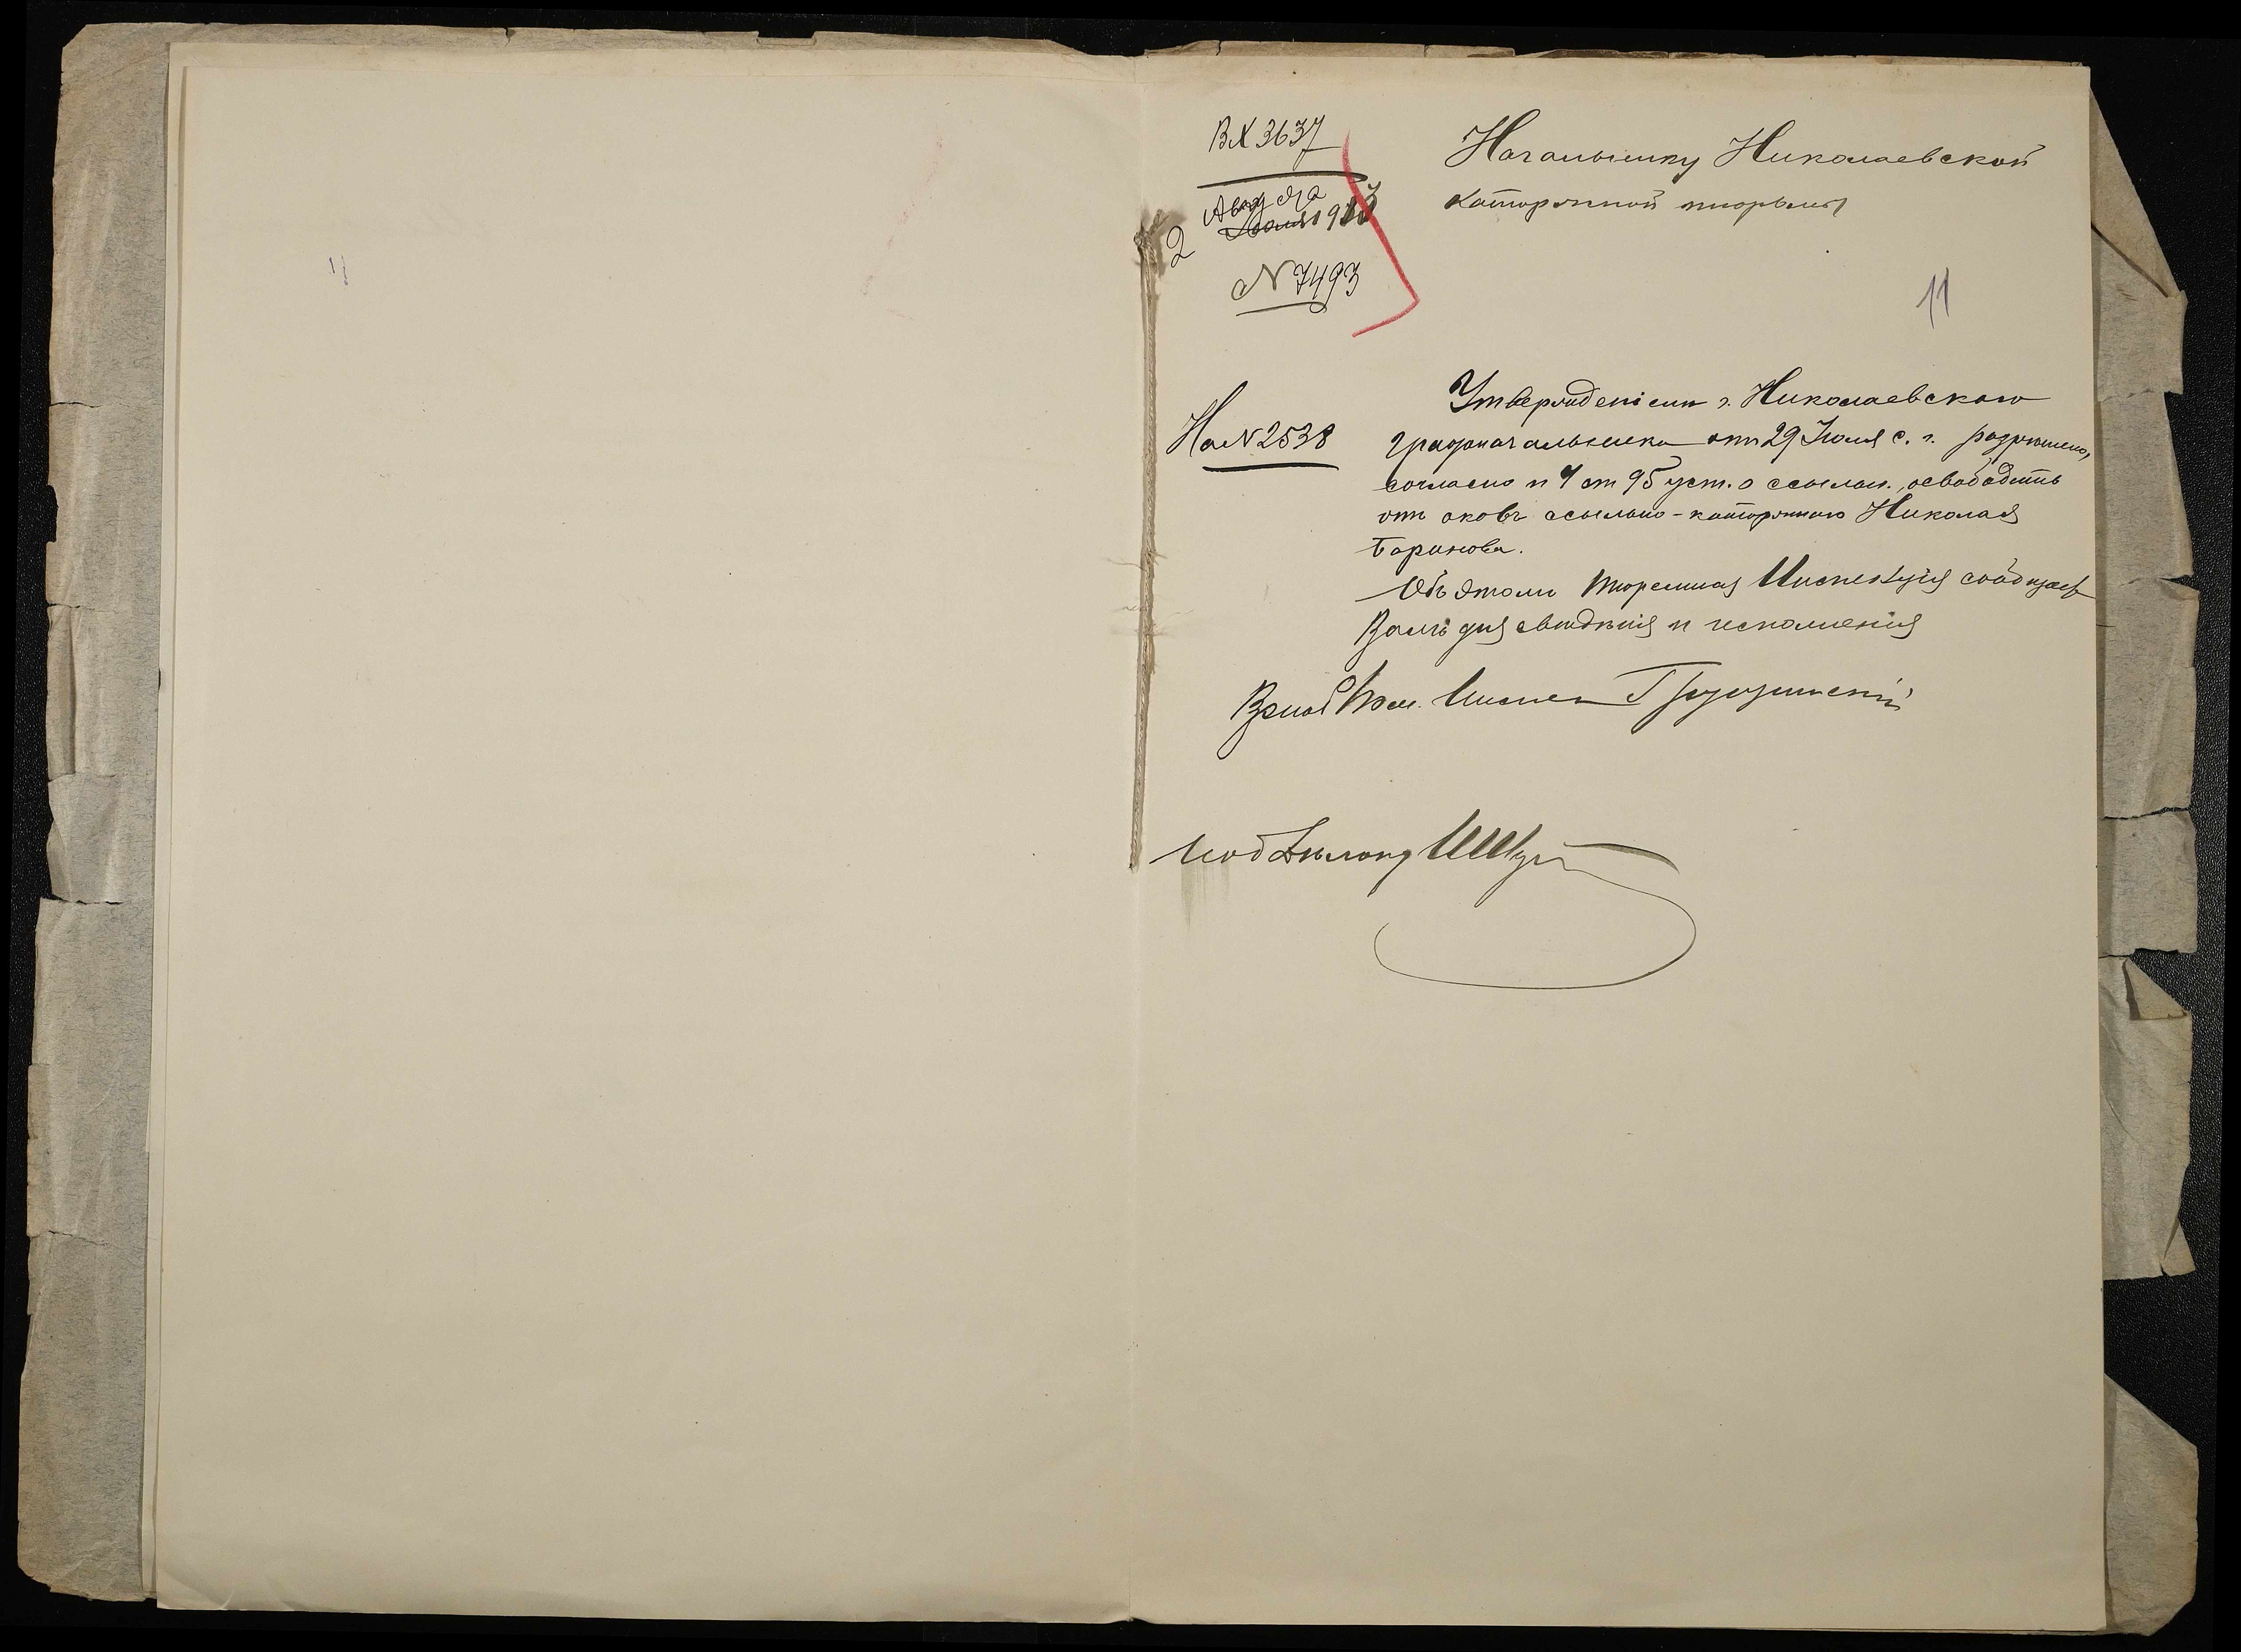 ВХ 3637
Августа
2 Июля 1913
N 7493
Начальнику Николаевской
каторжной тюрьмы
11
На N 2538
Утвержденiем г. Николаевскаго
градоначальника отъ 29 Июля с. г. разрѣшено,
согласно п 4 ст 95 уст. о ссыльн., освободить
отъ оковъ ссыльно-каторжнаго Николая
Баринова.
Объ этомъ Тюремная Инспекцiя сообщаетъ
Вамъ для свѣдѣнiя и исполненiя
Тюр. Инспек